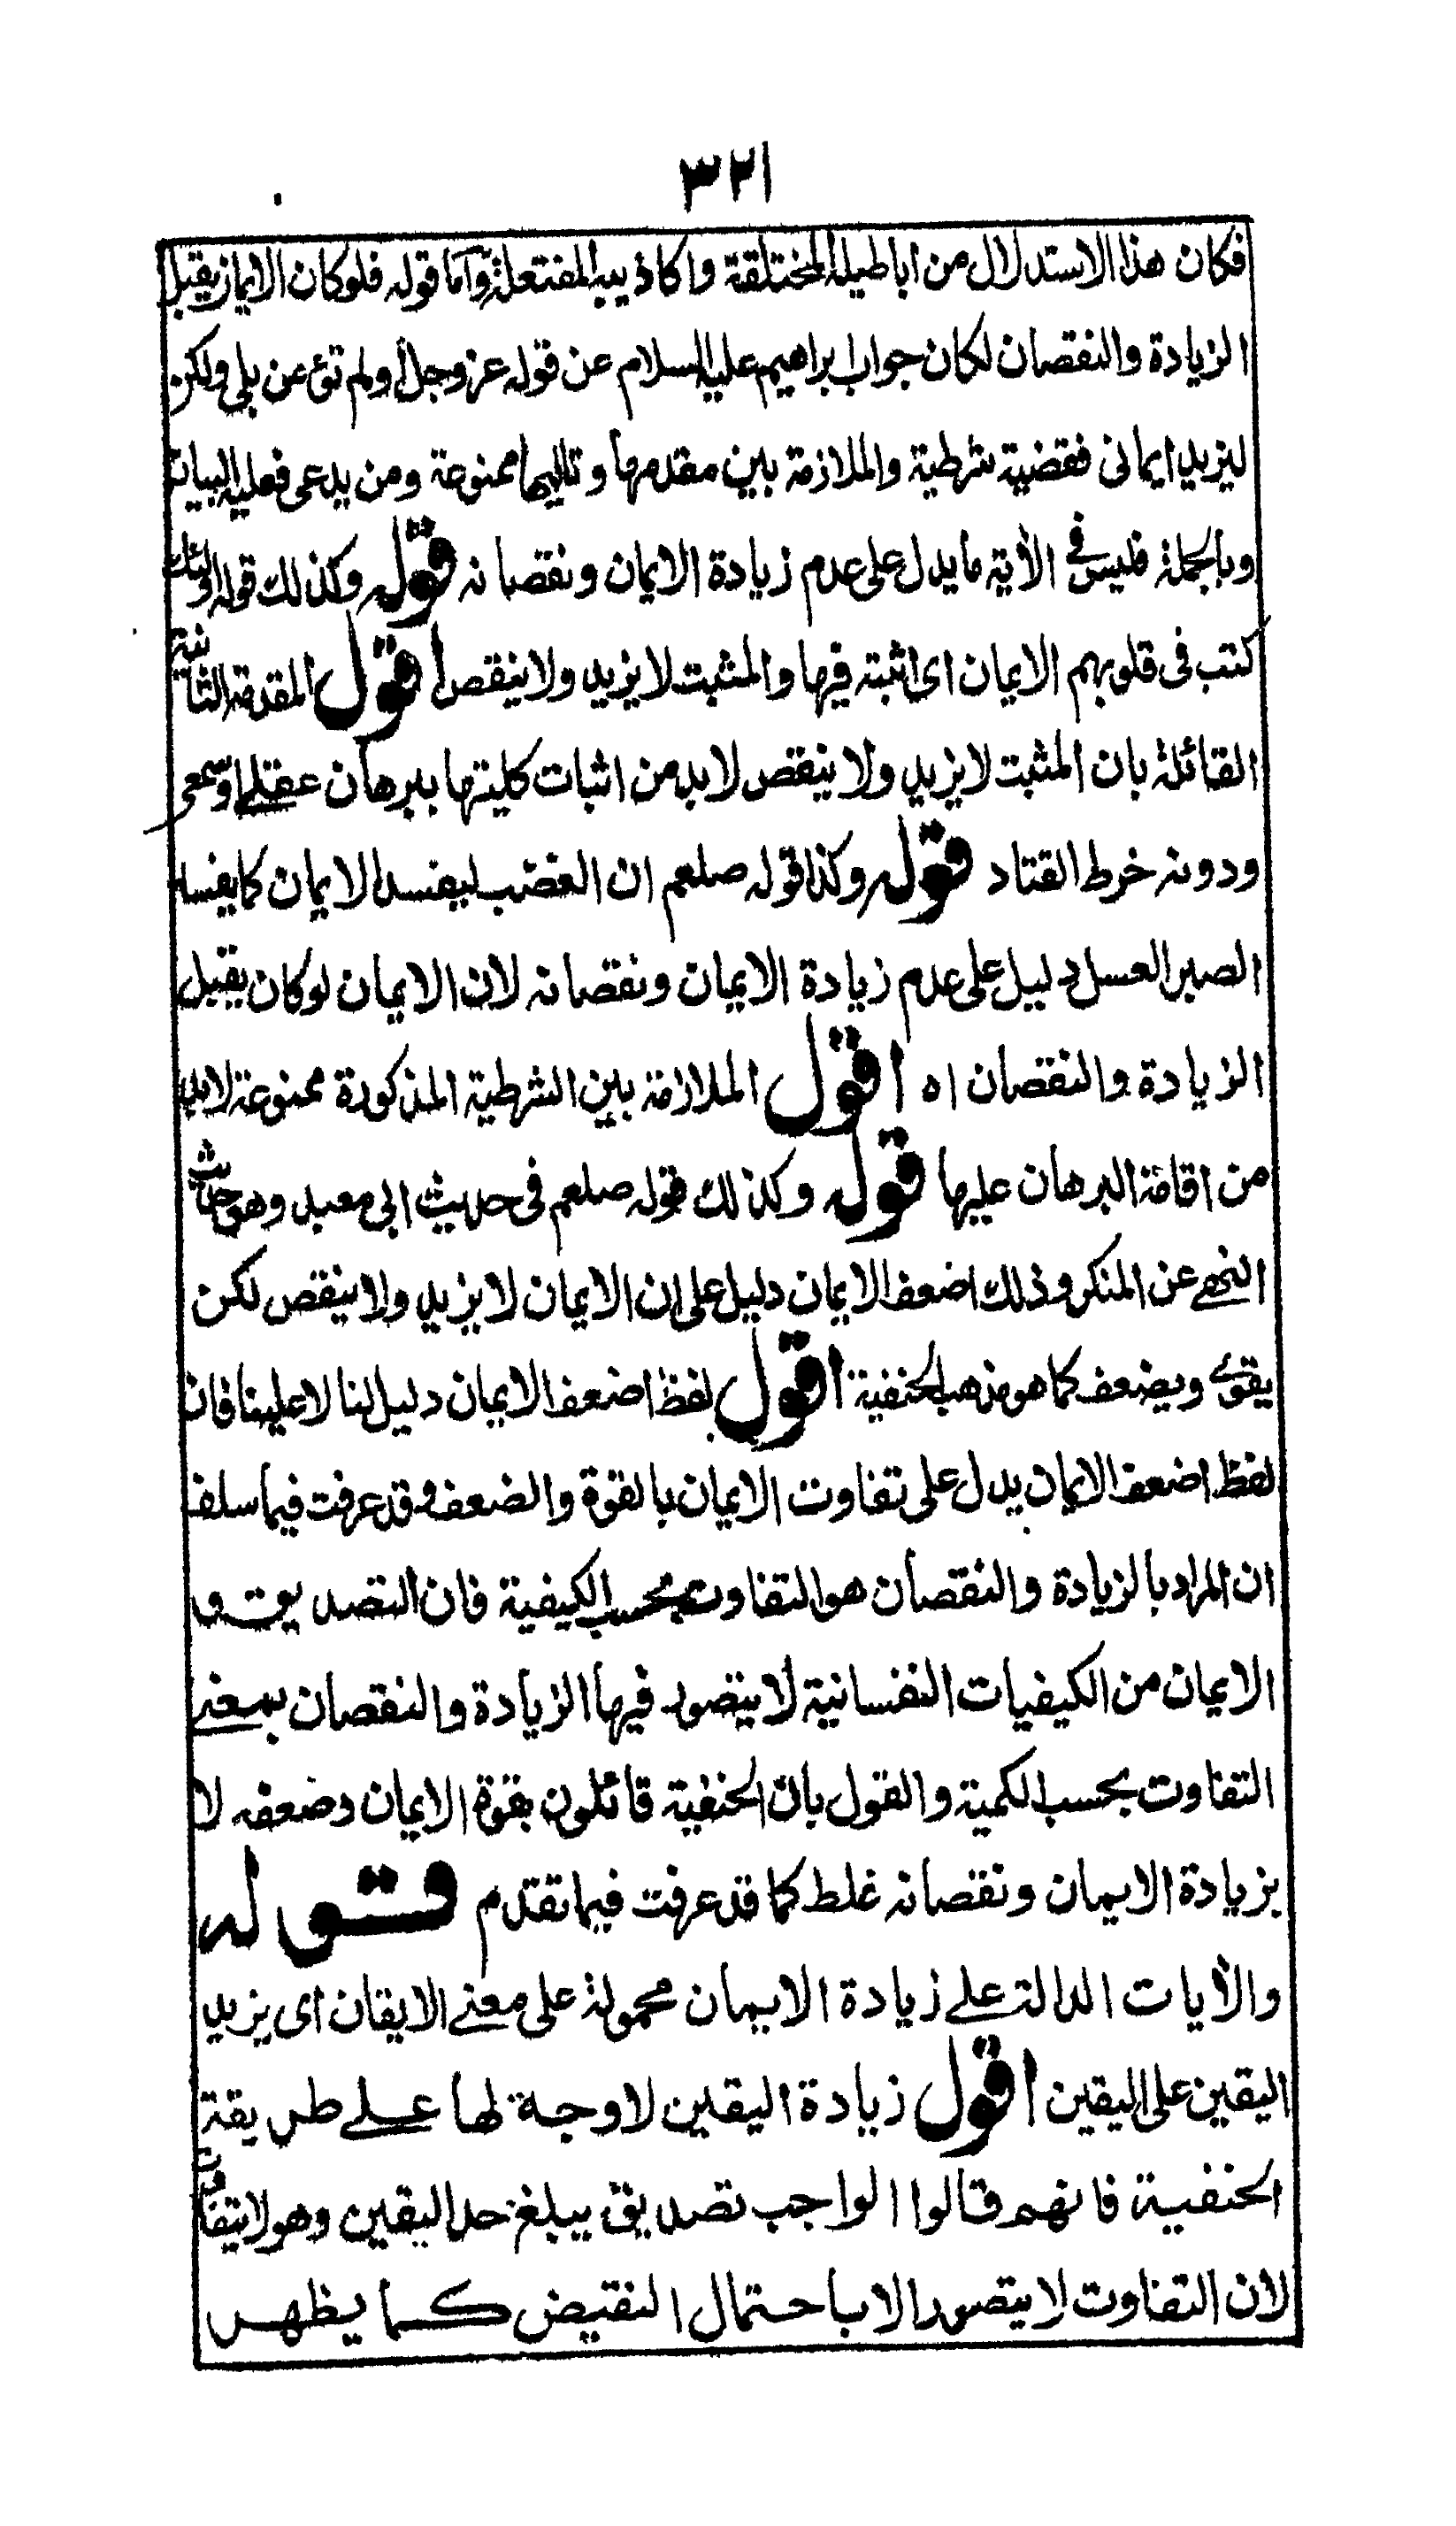 ٣٢١
فكان هذا الاستدلال من اباطيله المختلقة واكاذيبه المفتعلة وآما قوله فلوكان الايمان يقبل
الزيادة والنقصان لكان جواب ابراهيم عليه السلام عن قوله عز وجل اولم تؤمن بلى ولكن
ليزيد ايمانى فقضية شرطية والملازمة بين مقدمها وتاليها ممنوعة ومن يدعى فعليه البيان
وبالجملة فليس فى الأية مايدل على عدم زيادة الايمان ونقصانه قوله وكذلك قوله اولئك
كتب فى قلوبهم الايمان اى اثبته فيها والمثبت لا يزيد ولا ينقص اقول المقدمة الثانية
القائلة بان المثبت لا يزيد ولا ينقص لابد من اثبات كليتها ببرهان عقلے او سمعى
ودونه خرط القتاد قوله وكذا قوله صلعم ان الغضب ليفسد الايمان كما يفسد
الصبر العسل دليل على عدم زيادة الايمان ونقصانه لان الايمان لوكان يقبل
الزيادة والنقصان اه اقول الملازمة بين الشرطية المذكورة ممنوعة لابد
من اقامة البرهان عليها قوله وكذلك قوله صلعم فى حديث ابى معبد وهو حديث
النهے عن المنكر وذلك اضعف الايمان دليل على ان الايمان لا يزيد ولا ينقص لكن
يقوے ويضعف كما هو مذهب الحنفية اقول لفظ اضعف الايمان دليل لنا لا علينا فان
لفظ اضعف الايمان يدل على تفاوت الايمان بالقوة والضعف وقد عرفت فيما سلف
ان المراد بالزيادة والنقصان هو التفاوت بحسب الكيفية فان التصديق و
الايمان من الكيفيات النفسانية لا يتصور فيها الزيادة والنقصان بمعنے
التفاوت بحسب الكمية والقول بان الحنفية قائلون بقوة الايمان وضعفه لا
بزيادة الايمان ونقصانه غلط كما قد عرفت فيما تقدم قوله
والأيات الدالة علے زيادة الايمان محمولة على معنے الايقان اى يزيد
اليقين على اليقين اقول زيادة اليقين لا وجه لها علے طريقة
الحنفية فانهم قالوا الواجب تصديق يبلغ حد اليقين وهو لا يتفاوت
لان التفاوت لا يتصور الا باحتمال النقيض كما يظهر